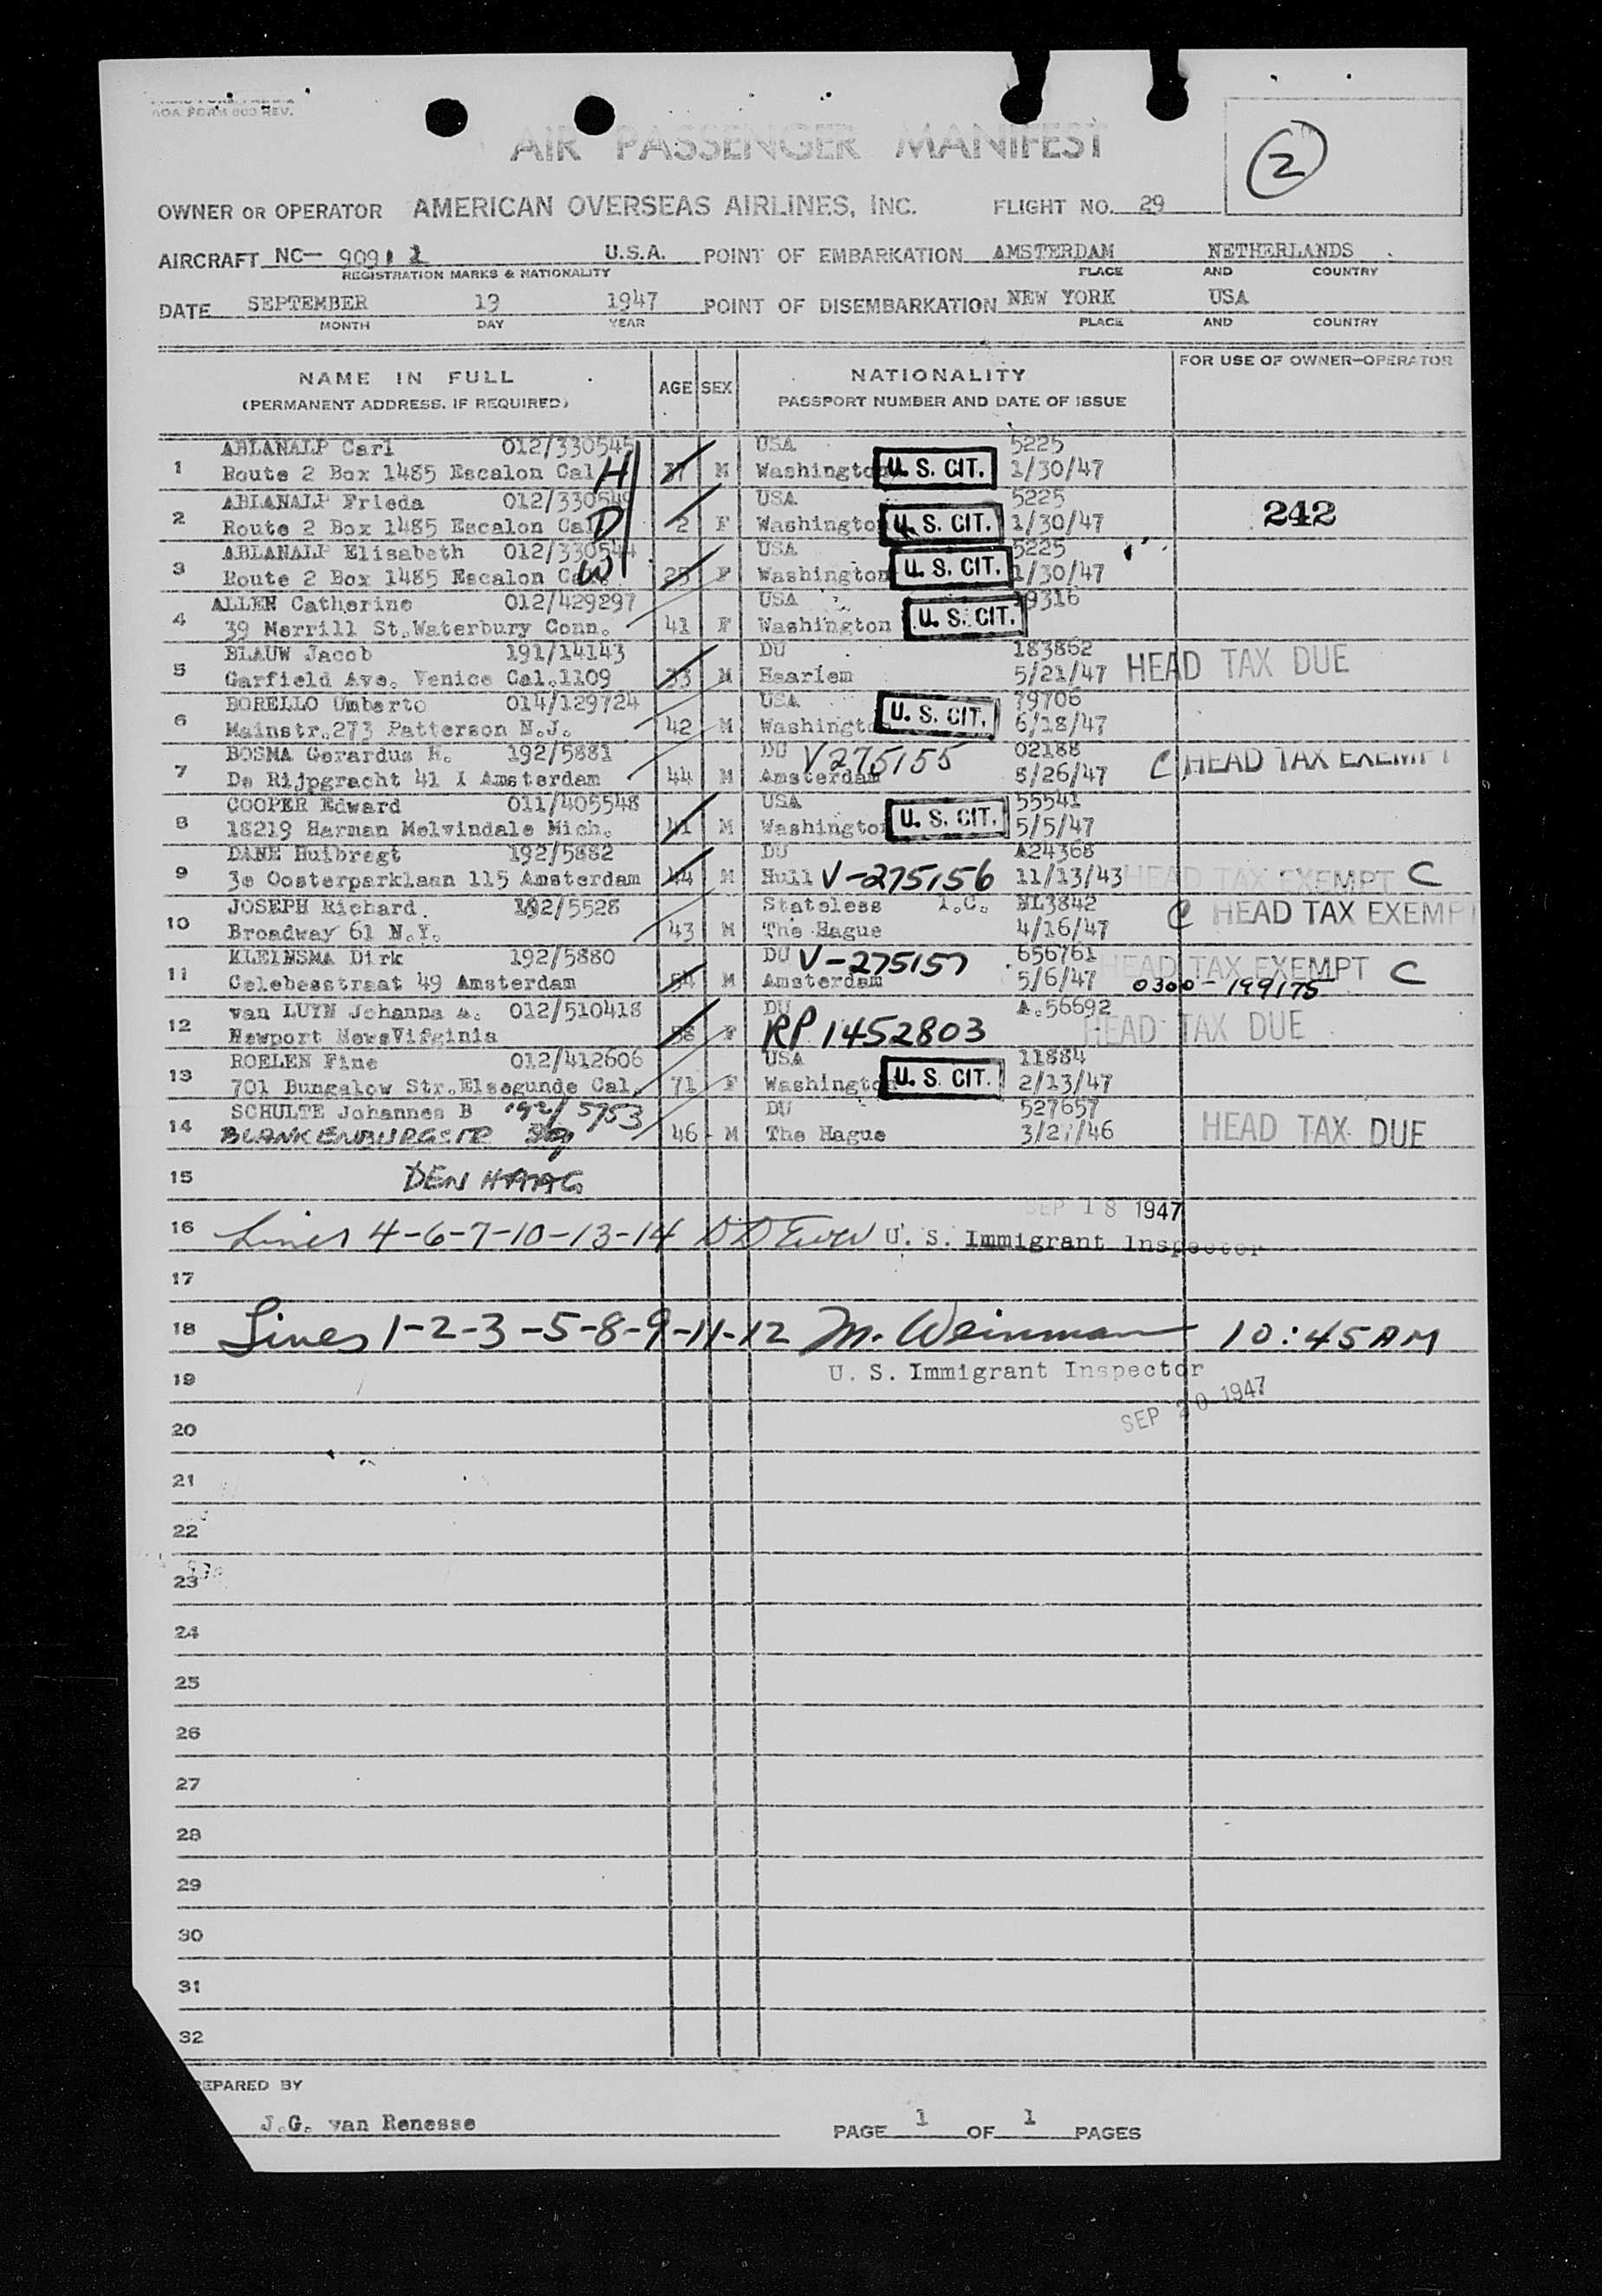 AOA FORM 603 REV.
AIR PASSENGER MANIFEST
2
OWNER OR OPERATOR AMERICAN OVERSEAS AIRLINES, INC. FLIGHT NO. 29
AIRCRAFT NC— 90911 U.S.A. POINT OF EMBARKATION AMSTERDAM NETHERLANDS
REGISTRATION MARKS & NATIONALITY PLACE AND COUNTRY
DATE SEPTEMBER 19 1947 POINT OF DISEMBARKATION NEW YORK USA
MONTH DAY YEAR PLACE AND COUNTRY
NAME IN FULL AGE SEX NATIONALITY FOR USE OF OWNER-OPERATOR
(PERMANENT ADDRESS, IF REQUIRED) PASSPORT NUMBER AND DATE OF ISSUE
ABLANALP Carl 012/330545 USA 5225
1 Route 2 Box 1485 Escalon Cal H 37 M Washington U. S. CIT. 1/30/47
ABLANALP Frieda 012/330549 USA 5225 242
2 Route 2 Box 1485 Escalon Cal D 2 F Washington U. S. CIT. 1/30/47
ABLANALP Elisabeth 012/330544 USA 5225
3 Route 2 Box 1485 Escalon Cal. W 25 F Washington U. S. CIT. 1/30/47
ALLEN Catherine 012/429297 USA 19316
4 39 Merrill St.Waterbury Conn. 41 F Washington U. S. CIT.
BLAUW Jacob 191/14143 DU 183862
5 Garfield Ave. Venice Cal.1109 33 M Haarlem 5/21/47 HEAD TAX DUE
BORELLO Umberto 014/129724 USA 79706
6 Mainstr.273 Patterson N.J. 42 M Washington U. S. CIT. 6/18/47
BOSMA Gerardus H. 192/5881 DU V275155 02188
7 De Rijpgracht 41 I Amsterdam 44 M Amsterdam 8/26/47 C HEAD TAX EXEMPT
COOPER Edward 011/405548 USA 55541
8 18219 Harman Melvindale Mich. 41 M Washington U. S. CIT. 5/5/47
DANE Huibregt 192/5882 DU A24368
9 3e Oosterparklaan 115 Amsterdam 44 M Hull V-275156 11/13/43 HEAD TAX EXEMPT C
JOSEPH Richard 192/5528 Stateless I.C. NL3842
10 Broadway 61 N.Y. 43 M The Hague 4/16/47 C HEAD TAX EXEMP
KLEINSMA Dirk 192/5880 DU V-275157 656761 HEAD TAX EXEMPT C
11 Celebesstraat 49 Amsterdam 54 M Amsterdam 5/6/47 0300-199175
van LUYN Johanna A. 012/510418 DU A.56692
12 Newport NewsVifginia 58 F RP 1452803 HEAD TAX DUE
ROELEN Fine 012/412606 USA 11884
13 701 Bungalow Str.Elsegunde Cal. 71 F Washington U. S. CIT. 2/13/47
SCHULTE Johannes B 192/5753 DU 527657
14 BLANKENBURGSTR 46 M The Hague HEAD TAX DUE
15 DEN HAAG
SEP 18 1947
16 Lines 4-6-7-10-13-14 U. S. Immigrant Inspector
17
18 Lines 1-2-3-5-8-9-11-12 M. Weinman 10:45AM
19 U. S. Immigrant Inspector
SEP 20 1947
20
21
22
23
24
25
26
27
28
29
30
31
32
EPARED BY
J.G. van Renesse PAGE 1 OF 1 PAGES